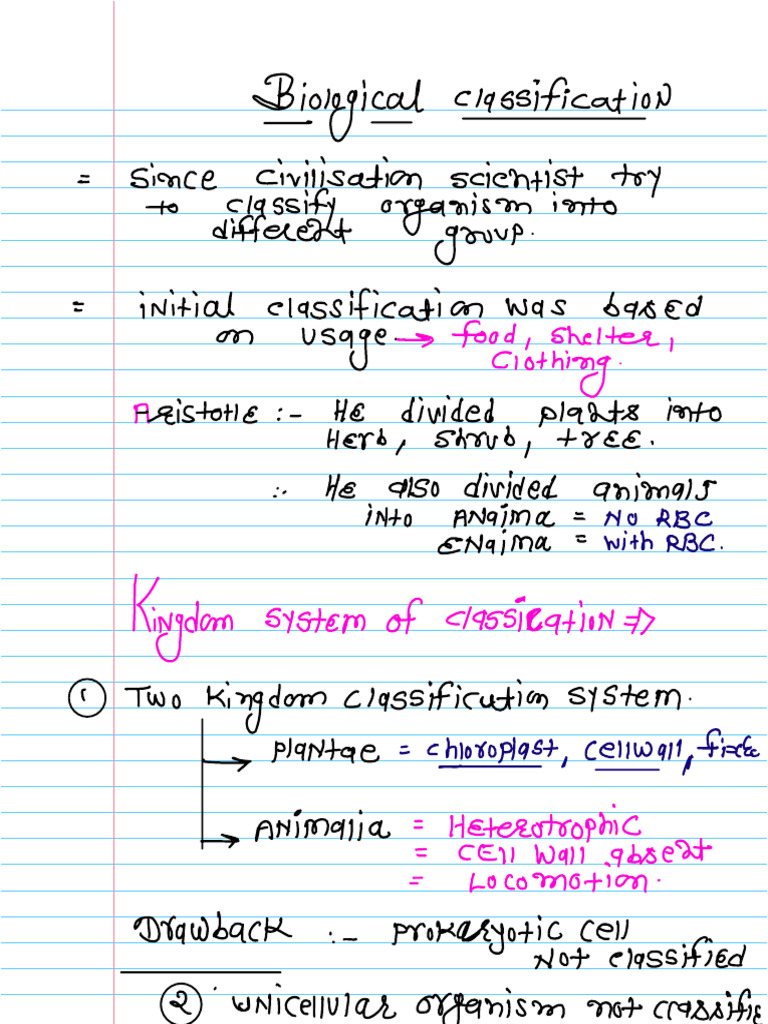 Biological classification
= Since civilisation scientist try
to classify organism into
different group.
= initial classification was based
on usage → food, shelter,
Clothing.
Aristotle :- He divided plants into
Herb, shrub, tree.
:. He also divided animals
into ANaima = No RBC
ENaima = with RBC.
Kingdom system of classication ⇒
① Two Kingdom classification system.
→ Plantae = chloroplast, cellwall,
→ ANimalia = Heterotrophic
= Cell wall absent
= Locomotion.
Drawback :- Prokaryotic cell
Not classified
② unicellular organism not classifie